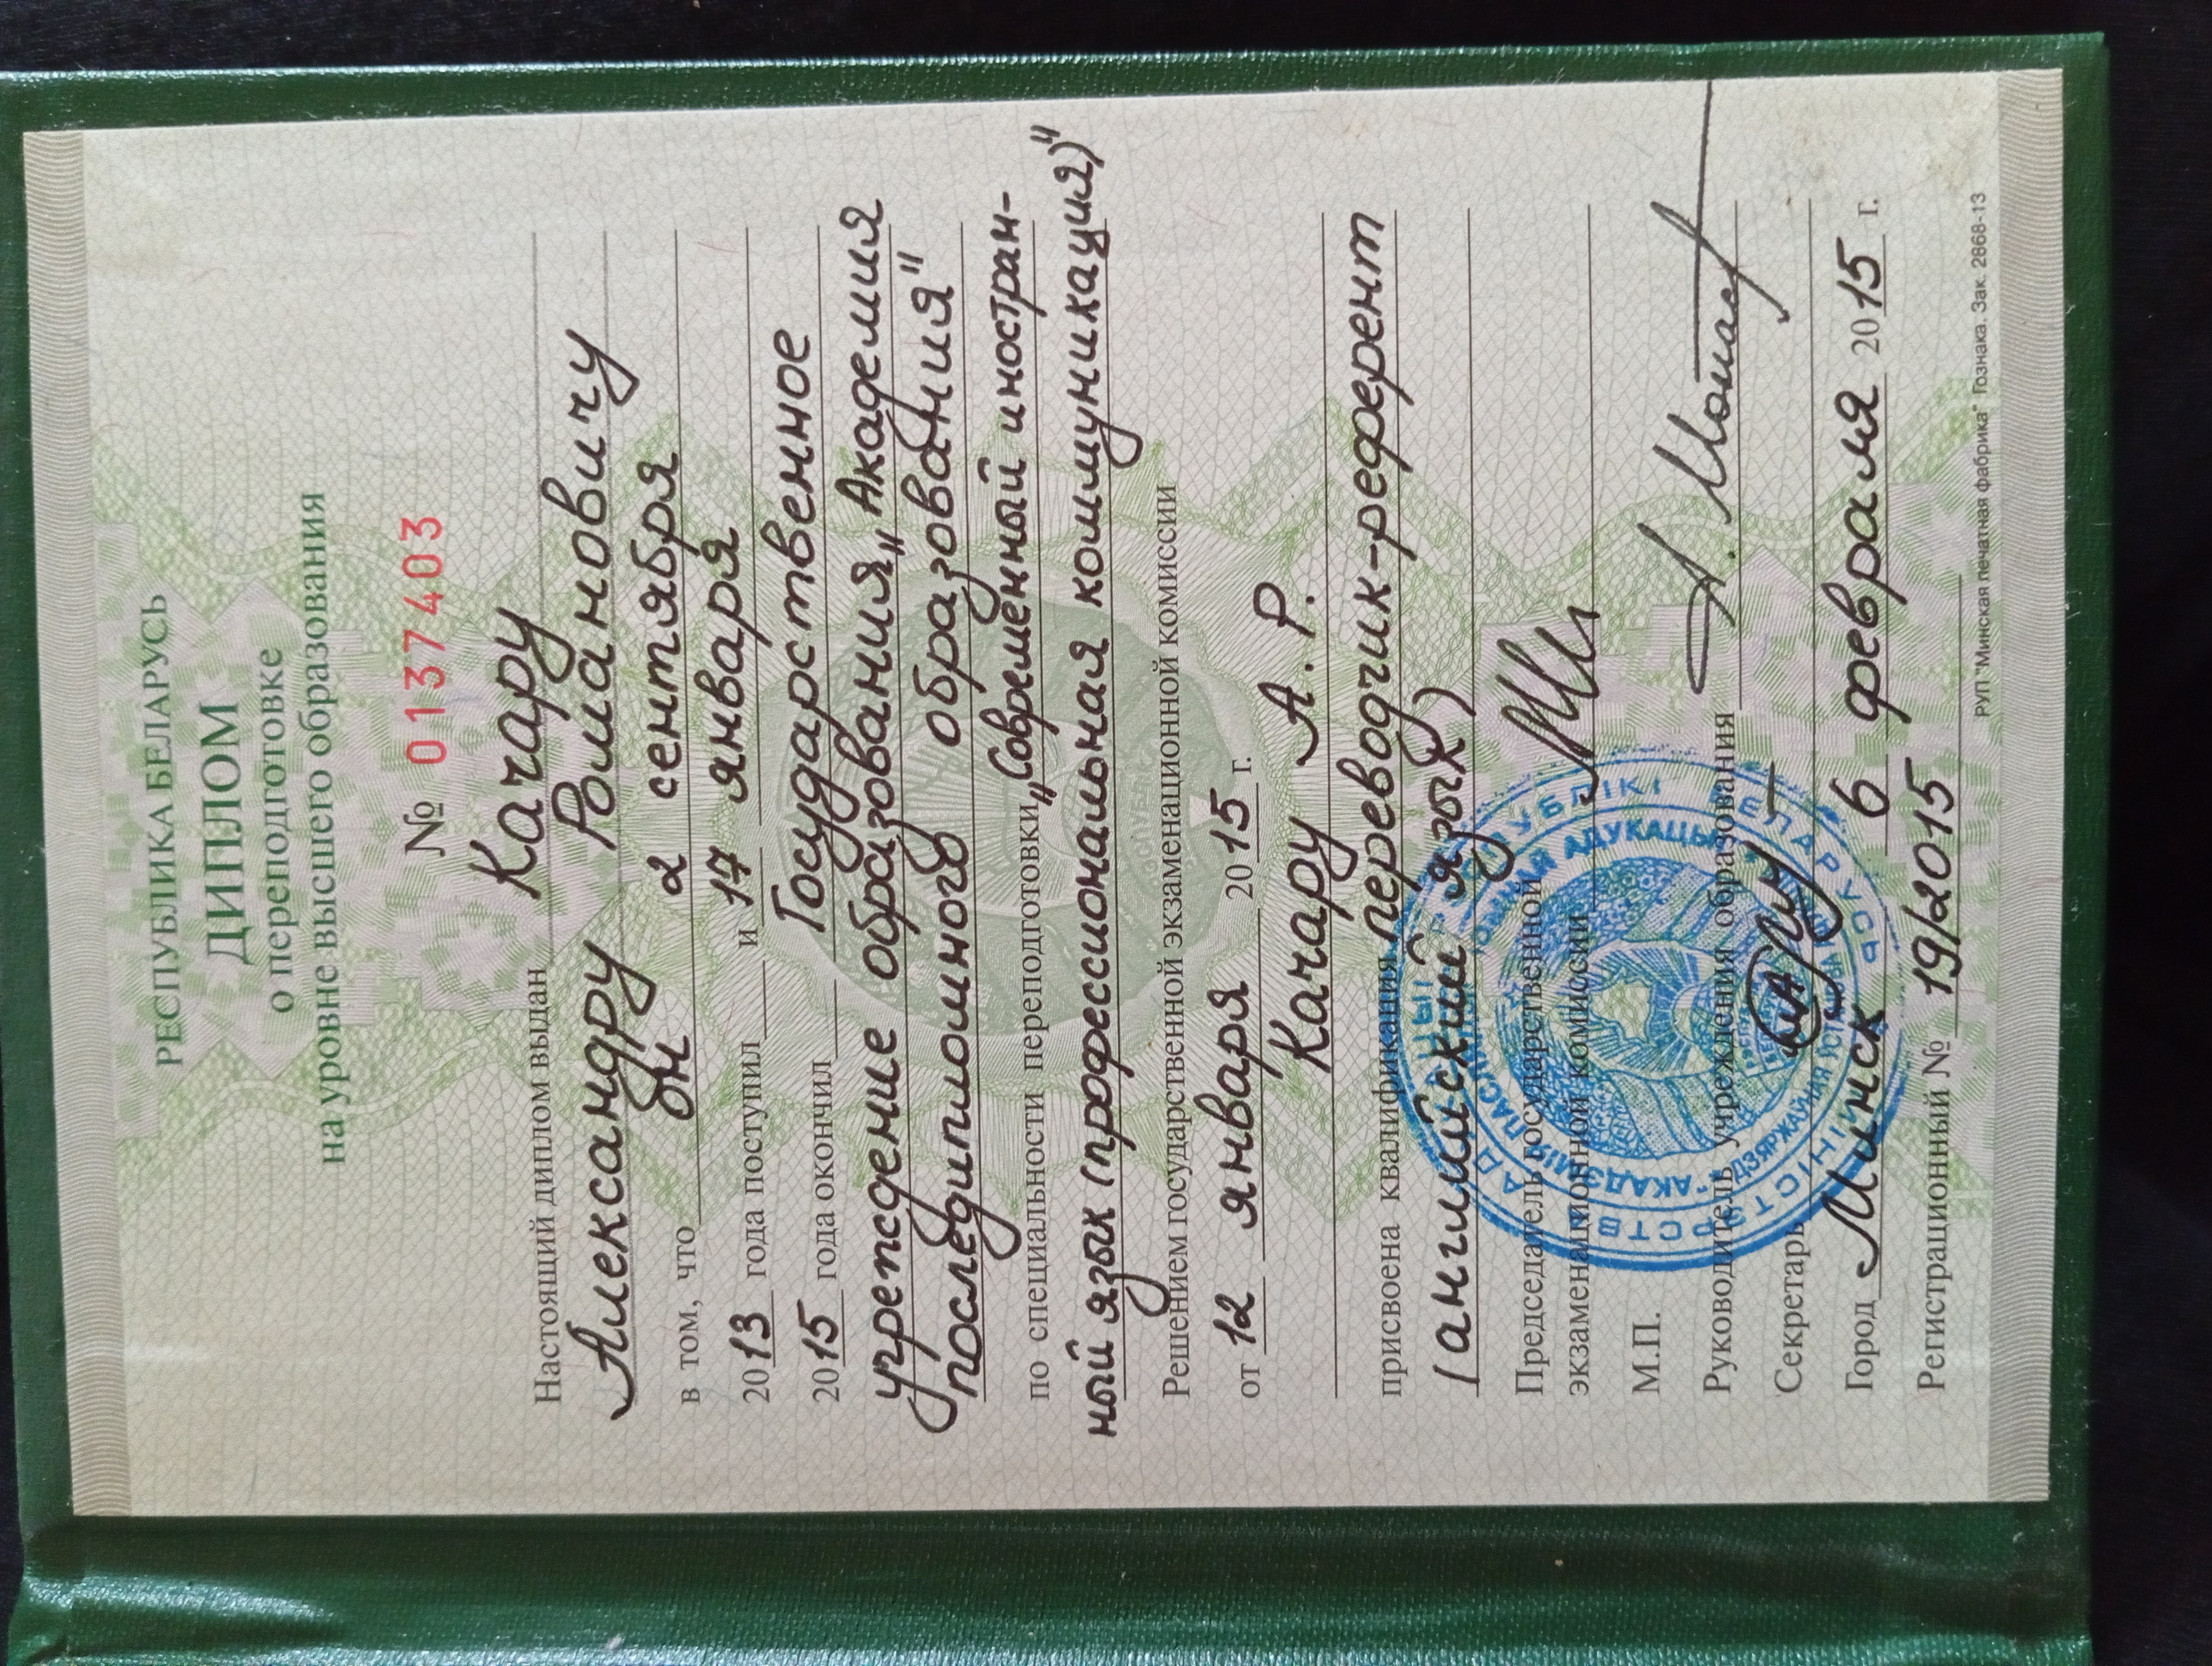 РЕСПУБЛИКА БЕЛАРУСЬ
ДИПЛОМ
о переподготовке
на уровне высшего образования
№ 0137403
Настоящий диплом выдан Качару
Александру Романовичу
в том, что он 2 сентября
2013 года поступил и 17 января
2015 года окончил Государственное
учреждение образования „Академия
последипломного образования"
по специальности переподготовки „Современный иностран-
ный язык (профессиональная коммуникация)"
Решением государственной экзаменационной комиссии
от 12 января 2015 г.
Качару А. Р.
присвоена квалификация переводчик-референт
(английский язык)
Председатель государственной
экзаменационной комиссии
М.П.
Руководитель учреждения образования
Секретарь
Город Минск 6 февраля 2015 г.
Регистрационный № 19/2015
РУП "Минская печатная фабрика" Гознака. Зак. 2868-13